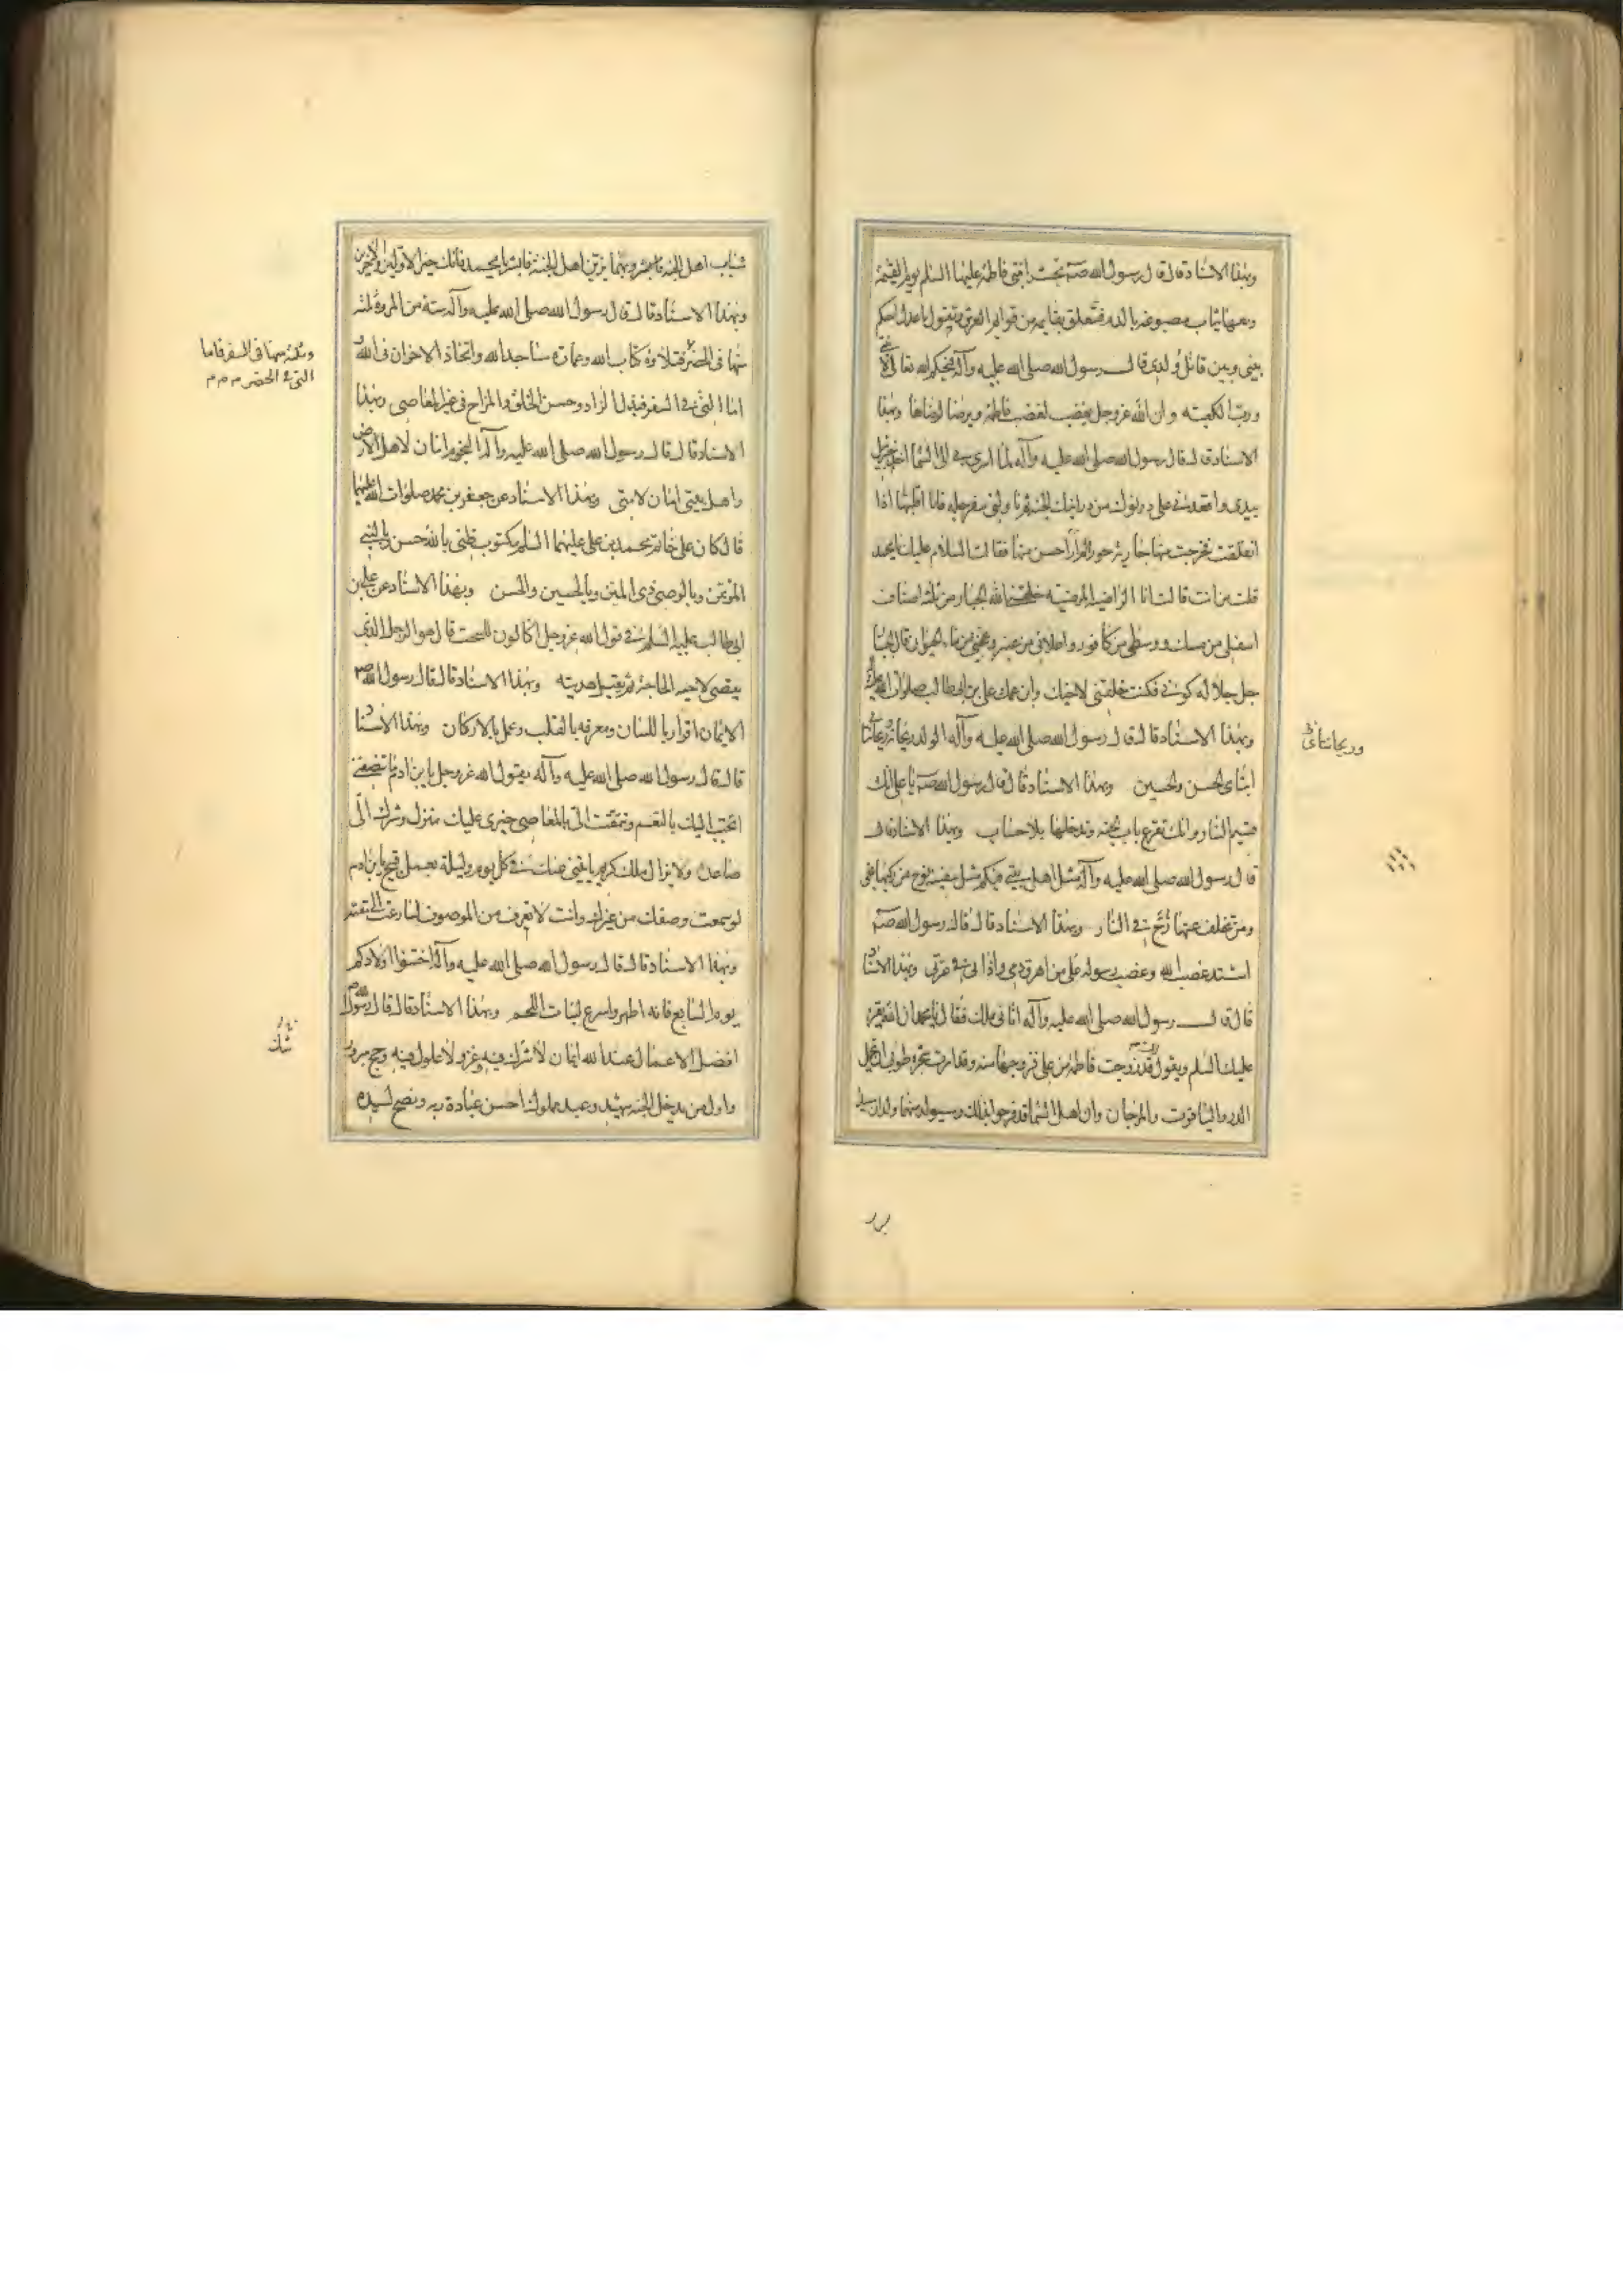 وبهذا الاسناد قال قال رسول الله صم تحشر ابنتي فاطمة عليها السلم يوم القيمة
ومعها ثياب مصبوغة بالدم فتعلق بقايمة من قوايم العرش وتقول يا عدل احكم
بيني وبين قاتل ولدي قال رسول الله صلى الله عليه وآله فيحكم الله تعالى لابنتي
ورب الكعبة وان الله عز وجل يغضب لغضب فاطمة ويرضا لرضاها وبهذا
الاسناد قال قال رسول الله صلى الله عليه وآله لما اسري بي الى السما اخذ جبرئيل
بيدي واقعدني على درنوك من درانيك الجنة ثم ناولني سفرجلة فانا اقلبها اذا
انفلقت فخرجت منها جارية حورا لم ار احسن منها فقالت السلام عليك يا محمد
قلت من انت قالت انا الراضية المرضية خلقني الله الجبار من ثلثة اصناف
اسفلي من مسك ووسطي من كافور واعلاني من عنبر وعجنني من ماء الحيوان قال الجبار
جل جلاله كوني فكنت خلقني لاخيك وابن عمك علي بن ابي طالب صلوات الله عليه
وبهذا الاسناد قال قال رسول الله صلى الله عليه وآله الولد ريحانة وريحانتاي
وريحانتاي
ابناي الحسن والحسين وبهذا الاسناد قال قال رسول الله صم يا علي انك
قسيم النار وانك تقرع باب الجنة وتدخلها بلا حساب وبهذا الاسناد قال
قال رسول الله صلى الله عليه وآله مثل اهل بيتي فيكم مثل سفينة نوح من ركبها نجى
ومن تخلف عنها زج في النار وبهذا الاسناد قال قال رسول الله صم
اشتد غضب الله وغضب رسوله على من اهرق دمي واذاني في عترتي وبهذا الاسناد
قال قال رسول الله صلى الله عليه وآله اتاني ملك فقال يا محمد ان الله يقرئ
عليك السلم ويقول قد زوجت فاطمة من علي فزوجها منه وقد امرت شجرة طوبى ان تحمل
الدر والياقوت والمرجان وان اهل السما قد فرحوا بذلك وسيولد منهما ولدان سيدا
شباب اهل الجنة وبهما يزين اهل الجنة فابشر يا محمد فانك خير الاولين والاخرين
وبهذا الاسناد قال قال رسول الله صلى الله عليه وآله ستة من المروة ثلثة
منها في الحضر فتلاوة كتاب الله وعمارة مساجد الله واتخاذ الاخوان في الله و
وثلثة منها في السفر فاما
التي في الحضر
اما التي في السفر فبذل الزاد وحسن الخلق والمزاح في غير المعاصي وبهذا
الاسناد قال قال رسول الله صلى الله عليه وآله النجوم امان لاهل الارض
واهل بيتي امان لامتي وبهذا الاسناد عن جعفر بن محمد صلوات الله عليهما
قال كان على خاتم محمد بن علي عليهما السلم مكتوب ظني بالله حسن وبالنبي
المؤتمن وبالوصي ذي المنن وبالحسين والحسن وبهذا الاسناد عن علي بن
ابي طالب عليه السلم في قول الله عز وجل اكالون للسحت قال هو الرجل الذي
يقضي لاخيه الحاجة ثم يقبل هديته وبهذا الاسناد قال قال رسول الله ص
الايمان اقرار باللسان ومعرفة بالقلب وعمل بالاركان وبهذا الاسناد
قال قال رسول الله صلى الله عليه وآله يقول الله عز وجل يا بن ادم ما تنصفني
اتحبب اليك بالنعم وتتمقت الي بالمعاصي خيري عليك منزل وشرك الي
صاعد ولا يزال ملك كريم ياتيني عنك في كل يوم وليلة بعمل قبيح يا بن ادم
لو سمعت وصفك من غيرك وانت لا تعرف من الموصوف لسارعت الى مقته
وبهذا الاسناد قال قال رسول الله صلى الله عليه وآله اختنوا اولادكم
يوم السابع فانه اطهر واسرع لنبات اللحم وبهذا الاسناد قال قال رسول الله ص
افضل الاعمال عند الله ايمان لا شك فيه وغزو لا غلول فيه وحج مبرور
شك
واول من يدخل الجنة شهيد وعبد مملوك احسن عبادة ربه ونصح لسيده